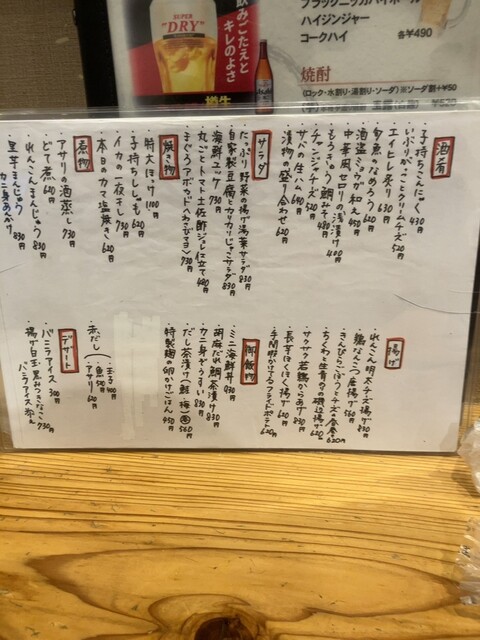 SUPER
"DRY"
飲みごたえと
キレのよさ
樽生
ブラックニッカハイボール
ハイジンジャー
コークハイ
各¥490
焼酎
(ロック・水割り・湯割り・ソーダ)※ソーダ割+¥50
酒肴
・子持ちこんにゃく 430円
・いぶりがっことクリームチーズ 520円
・エイヒレ炙り 630円
・旬魚のなめろう 620円
・酒盗ミョウガ和え 450円
・中華風セロリの浅漬け 400円
・もろきゅう鯛みそ 480円
・チャンジャチーズ 520円
・サバの生ハム 640円
・漬物の盛り合わせ 620円
サラダ
・たっぷり野菜の揚げ湯葉サラダ 830円
・自家製豆腐とカリカリじゃこサラダ 830円
・海鮮ユッケ 730円
・丸ごとトマト土佐酢ジュレ仕立て 480円
・まぐろアボカド(わさびマヨ) 730円
焼き物
・特大ほっけ 1100円
・子持ちししゃも 620円
・イカの一夜干し 730円
・本日のカマ塩焼き 620円
煮物
・アサリの酒蒸し 730円
・どて煮 640円
・れんこんまんじゅう 830円
・里芋まんじゅう
カニ身あんかけ 830円
揚げ
・れんこん明太チーズ揚げ 830円
・鶏なんこつ唐揚げ 560円
・きんぴらごぼうとチーズの春巻き 620円
・ちくわと生青のりの磯辺揚げ 620円
・サクサク若鶏からあげ 830円
・長芋ほくほく揚げ 620円
・手間暇かけてるフライドポテト 620円
御飯物
・ミニ海鮮丼 930円
・胡麻だれ鯛茶漬け 830円
・カニ身ぞうすい 830円
・だし茶漬け(鮭・梅) 各560円
・特製麹の卵かけごはん 450円
・赤だし
・玉子 400円
・魚 500円
・アサリ 620円
デザート
・バニラアイス 300円
・揚げ白玉黒みつきなこ 730円
バニラアイス添え